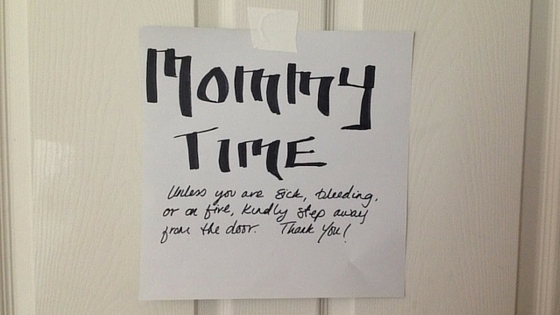 MOMMY
TIME
Unless you are sick, bleeding,
or on fire, kindly step away
from the door. Thank You!